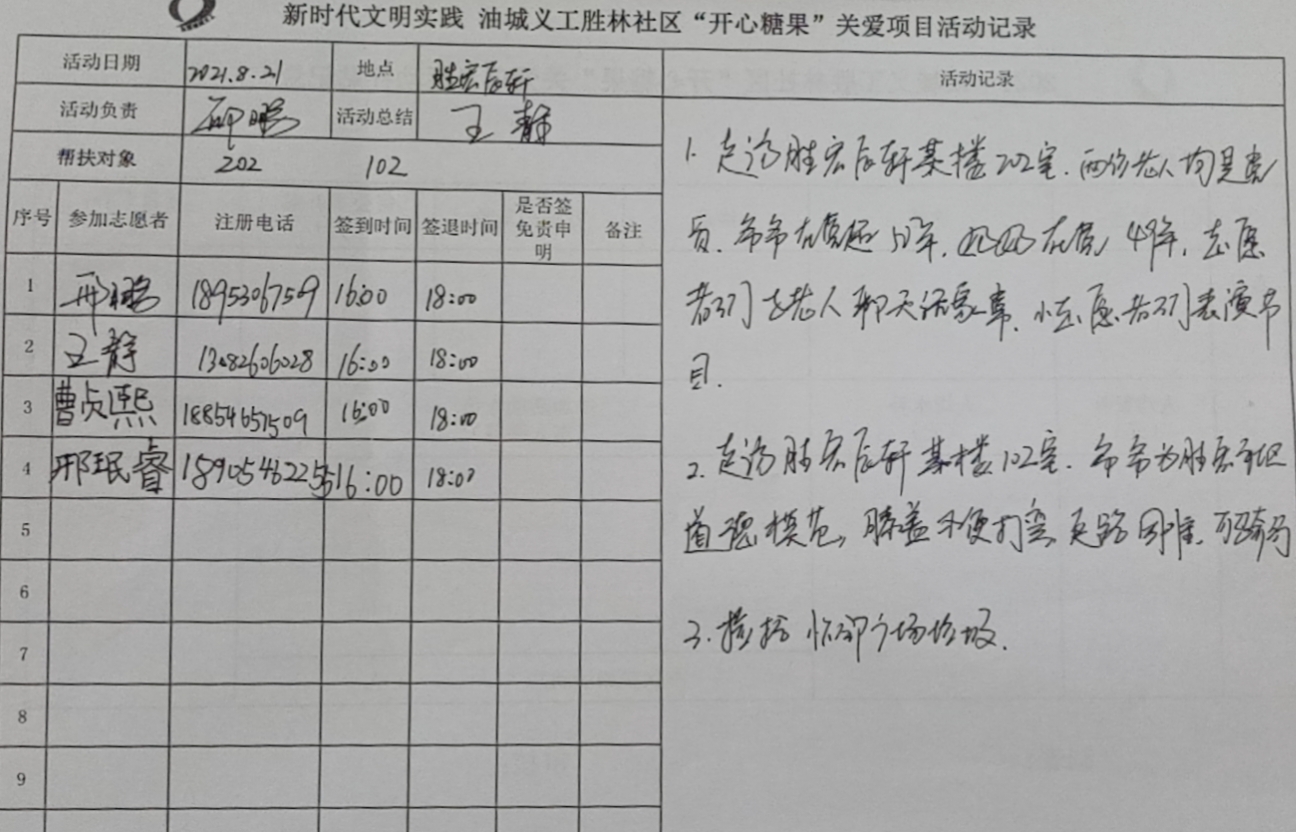 新时代文明实践 油城义工胜林社区“开心糖果”关爱项目活动记录
活动日期 2021.8.21 地点 胜宏辰轩 活动记录
活动负责 邢鹏 活动总结 王静
帮扶对象 202 102
序号 参加志愿者 注册电话 签到时间 签退时间 是否签免责申明 备注
1 邢鹏 18953067509 16:00 18:00
2 王静 13082606028 16:00 18:00
3 曹贞熙 18854657509 16:00 18:00
4 邢珉睿 18905462255 16:00 18:00
5
6
7
8
9
1. 走访胜宏辰轩某楼202室.两位老人均是党
员.爷爷在党超51年,奶奶在党49年,志愿
者们与老人聊天话家常、小志愿者们表演节
目.
2. 走访胜宏辰轩某楼102室.爷爷为胜宏社区
道德模范,膝盖不便打弯,走路困难.
3. 捡拾 广场垃圾.